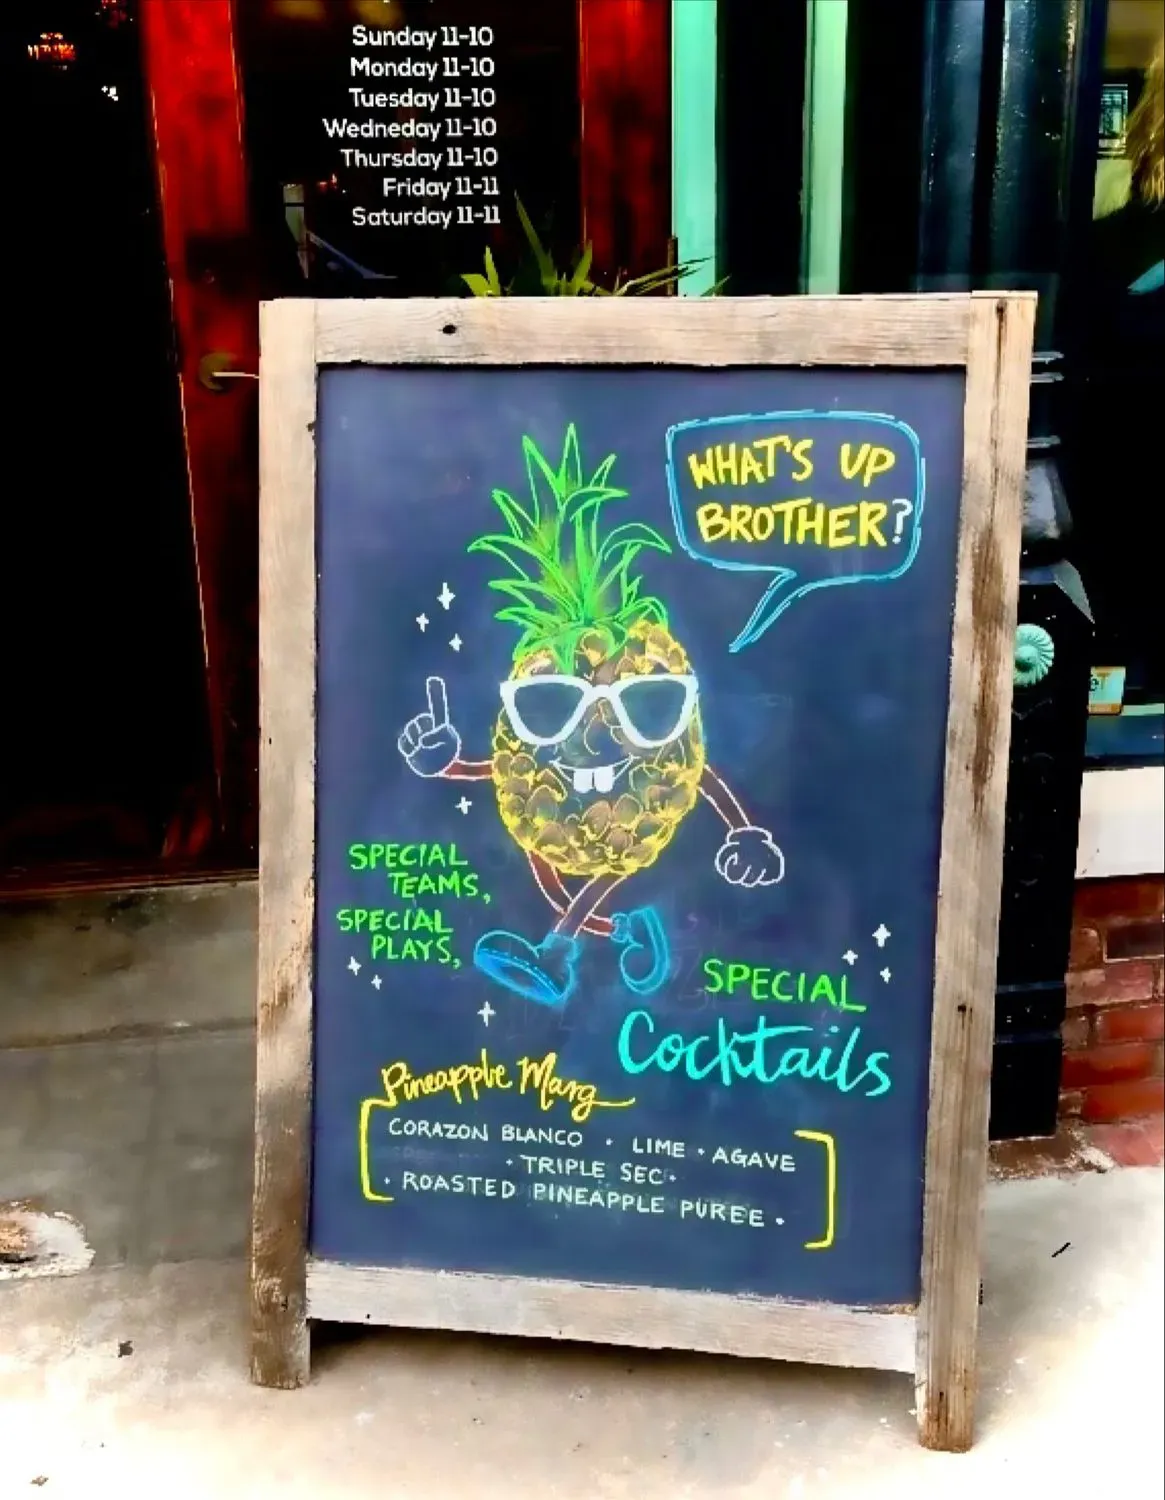 Sunday 11-10
Monday 11-10
Tuesday 11-10
Wedneday 11-10
Thursday 11-10
Friday 11-11
Saturday 11-11
WHAT'S UP
BROTHER?
SPECIAL
TEAMS,
SPECIAL
PLAYS,
SPECIAL
Cocktails
Pineapple Marg
CORAZON BLANCO • LIME • AGAVE
• TRIPLE SEC •
• ROASTED PINEAPPLE PUREE •